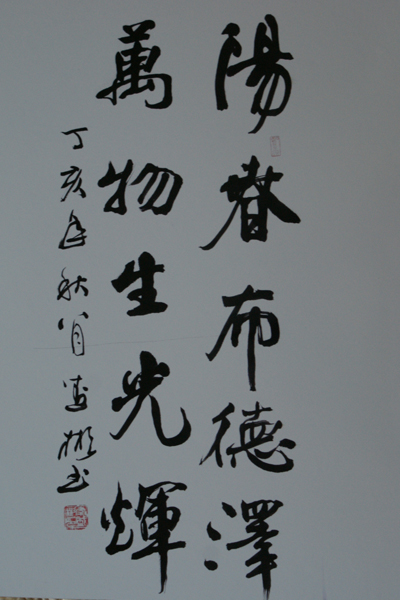 陽春布德澤
萬物生光輝
丁亥年秋八月 彬书